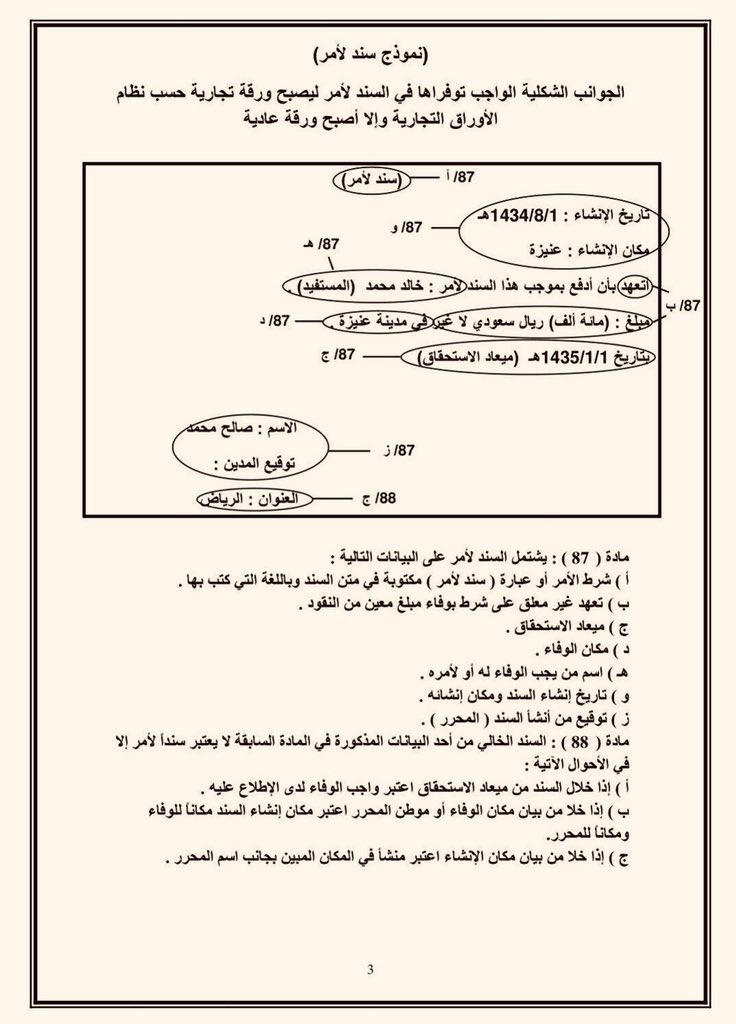 (نموذج سند لأمر)
الجوانب الشكلية الواجب توفراها في السند لأمر ليصبح ورقة تجارية حسب نظام
الأوراق التجارية وإلا أصبح ورقة عادية
(سند لأمر) 87/ أ
تاريخ الإنشاء : 1434/8/1هـ
87/ و
مكان الإنشاء : عنيزة
87/ هـ
اتعهد بأن أدفع بموجب هذا السند لأمر : خالد محمد (المستفيد) .
87/ ب
مبلغ : (مائة ألف) ريال سعودي لا غير في مدينة عنيزة . 87/ د
بتاريخ 1435/1/1هـ (ميعاد الاستحقاق) 87/ ج
الاسم : صالح محمد
87/ ز
توقيع المدين :
العنوان : الرياض 88/ ج
مادة ( 87 ) : يشتمل السند لأمر على البيانات التالية :
أ ) شرط الأمر أو عبارة ( سند لأمر ) مكتوبة في متن السند وباللغة التي كتب بها .
ب ) تعهد غير معلق على شرط بوفاء مبلغ معين من النقود .
ج ) ميعاد الاستحقاق .
د ) مكان الوفاء .
هـ ) اسم من يجب الوفاء له أو لأمره .
و ) تاريخ إنشاء السند ومكان إنشائه .
ز ) توقيع من أنشأ السند ( المحرر ) .
مادة ( 88 ) : السند الخالي من أحد البيانات المذكورة في المادة السابقة لا يعتبر سنداً لأمر إلا
في الأحوال الآتية :
أ ) إذا خلال السند من ميعاد الاستحقاق اعتبر واجب الوفاء لدى الإطلاع عليه .
ب ) إذا خلا من بيان مكان الوفاء أو موطن المحرر اعتبر مكان إنشاء السند مكاناً للوفاء
ومكاناً للمحرر.
ج ) إذا خلا من بيان مكان الإنشاء اعتبر منشأ في المكان المبين بجانب اسم المحرر .
3